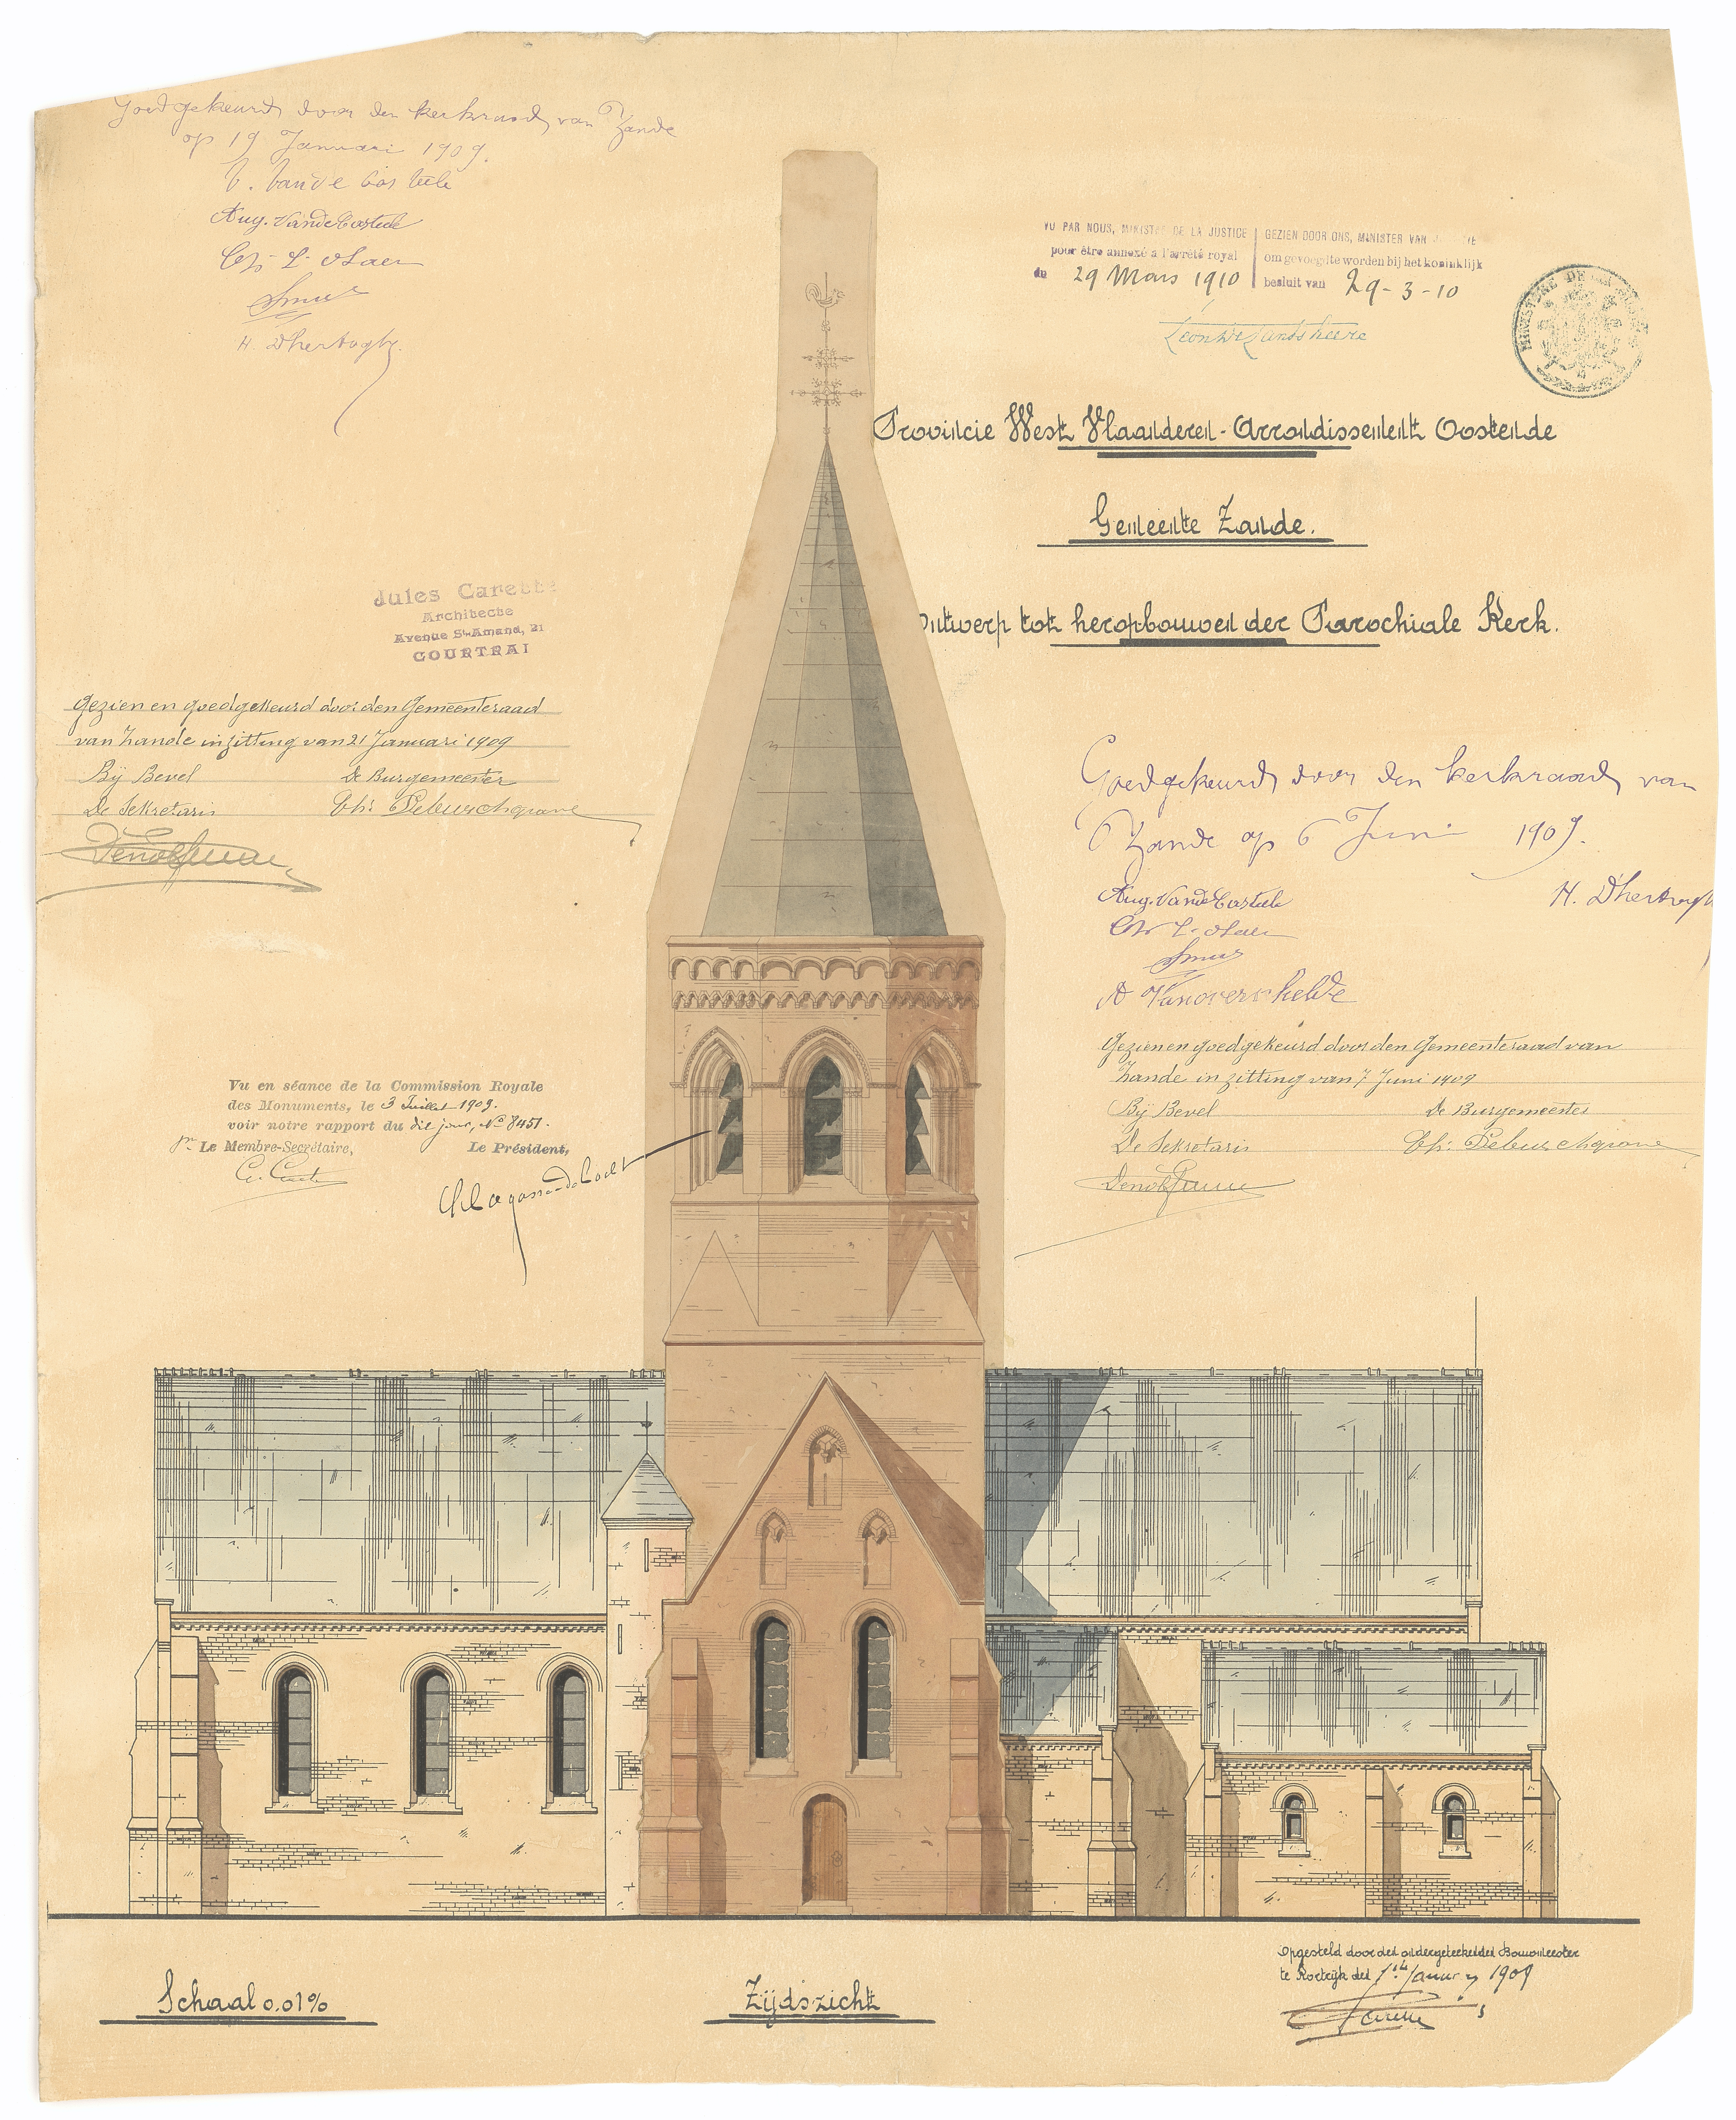 Goedgekeurd door den kerkraad van Zande
op 19 Januari 1909.
Aug. Vandecasteele
H. Dhertoghe
VU PAR NOUS, MINISTRE DE LA JUSTICE
pour être annexé à l'arrêté royal
du 29 Mars 1910
GEZIEN DOOR ONS, MINISTER VAN
om gevoegd te worden bij het koninklijk
besluit van 29-3-10
Léon De Lantsheere
MINISTERE DE LA
Provincie West Vlaanderen - Arrondissement Oostende
Gemeente Zande.
Ontwerp tot heropbouwen der Parochiale Kerk.
Jules Carette
Architecte
Avenue St-Amand, 21
COURTRAI
Gezien en goedgekeurd door den Gemeenteraad
van Zande in zitting van 21 Januari 1909
Bij Bevel De Burgemeester
De Sekretaris
Goedgekeurd door den kerkraad van
Zande op 6 Juni 1909.
Aug. Vandecasteele H. Dhertoghe
A Vanoverschelde
Gezien en goedgekeurd door den Gemeenteraad van
Zande in zitting van 7 Juni 1909
Bij Bevel De Burgemeester
De Sekretaris
Vu en séance de la Commission Royale
des Monuments, le 3 Juillet 1909.
voir notre rapport du dit jour, No 8451.
pr Le Membre-Secrétaire, Le Président,
Ch Lagasse-de Locht
Opgesteld door den ondergeteekenden Bouwmeester
te Kortrijk den January 1909
Carette
Schaal 0.01%
Zijdszicht